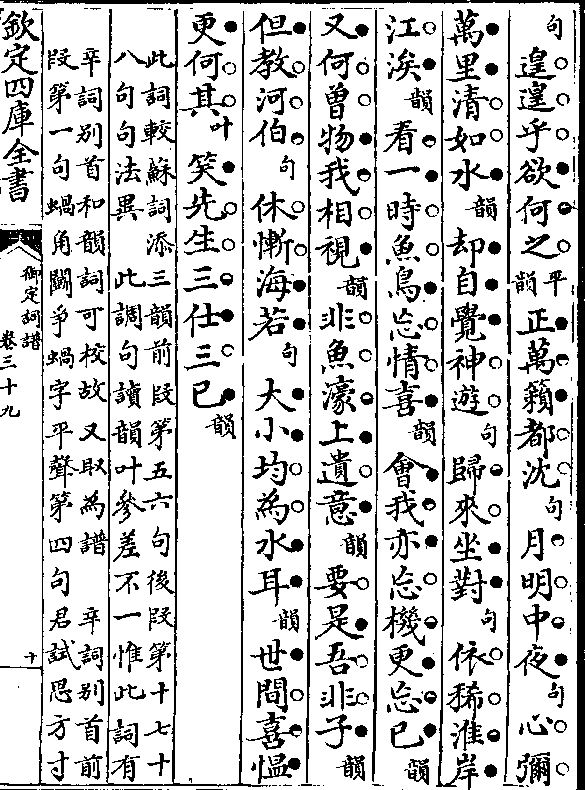 句 遑遑乎欲何之 平韻 正萬籟都沈 句 月明中夜 句 心彌
萬里清如水 韻 却自覺神遊 句 歸來坐對 句 依稀淮岸
江涘 韻 看一時魚鳥忘情喜 韻 會我亦忘機更忘已 韻
又何曾物我相視 韻 非魚濠上遺意 韻 要是吾非子 韻
但教河伯 句 休慚海若 句 大小均為水耳 韻 世間喜愠
更何其 叶 笑先生三仕三已 韻
此詞較蘇詞添三韻前段第五六句後段第十七十
八句句法異 此調句讀韻叶參差不一惟此詞有
辛詞別首和韻詞可校故又取為譜 辛詞別首前
段第一句蝸角鬬爭蝸字平聲第四句君試思方寸
欽定四庫全書
御定詞譜
卷三十九
十